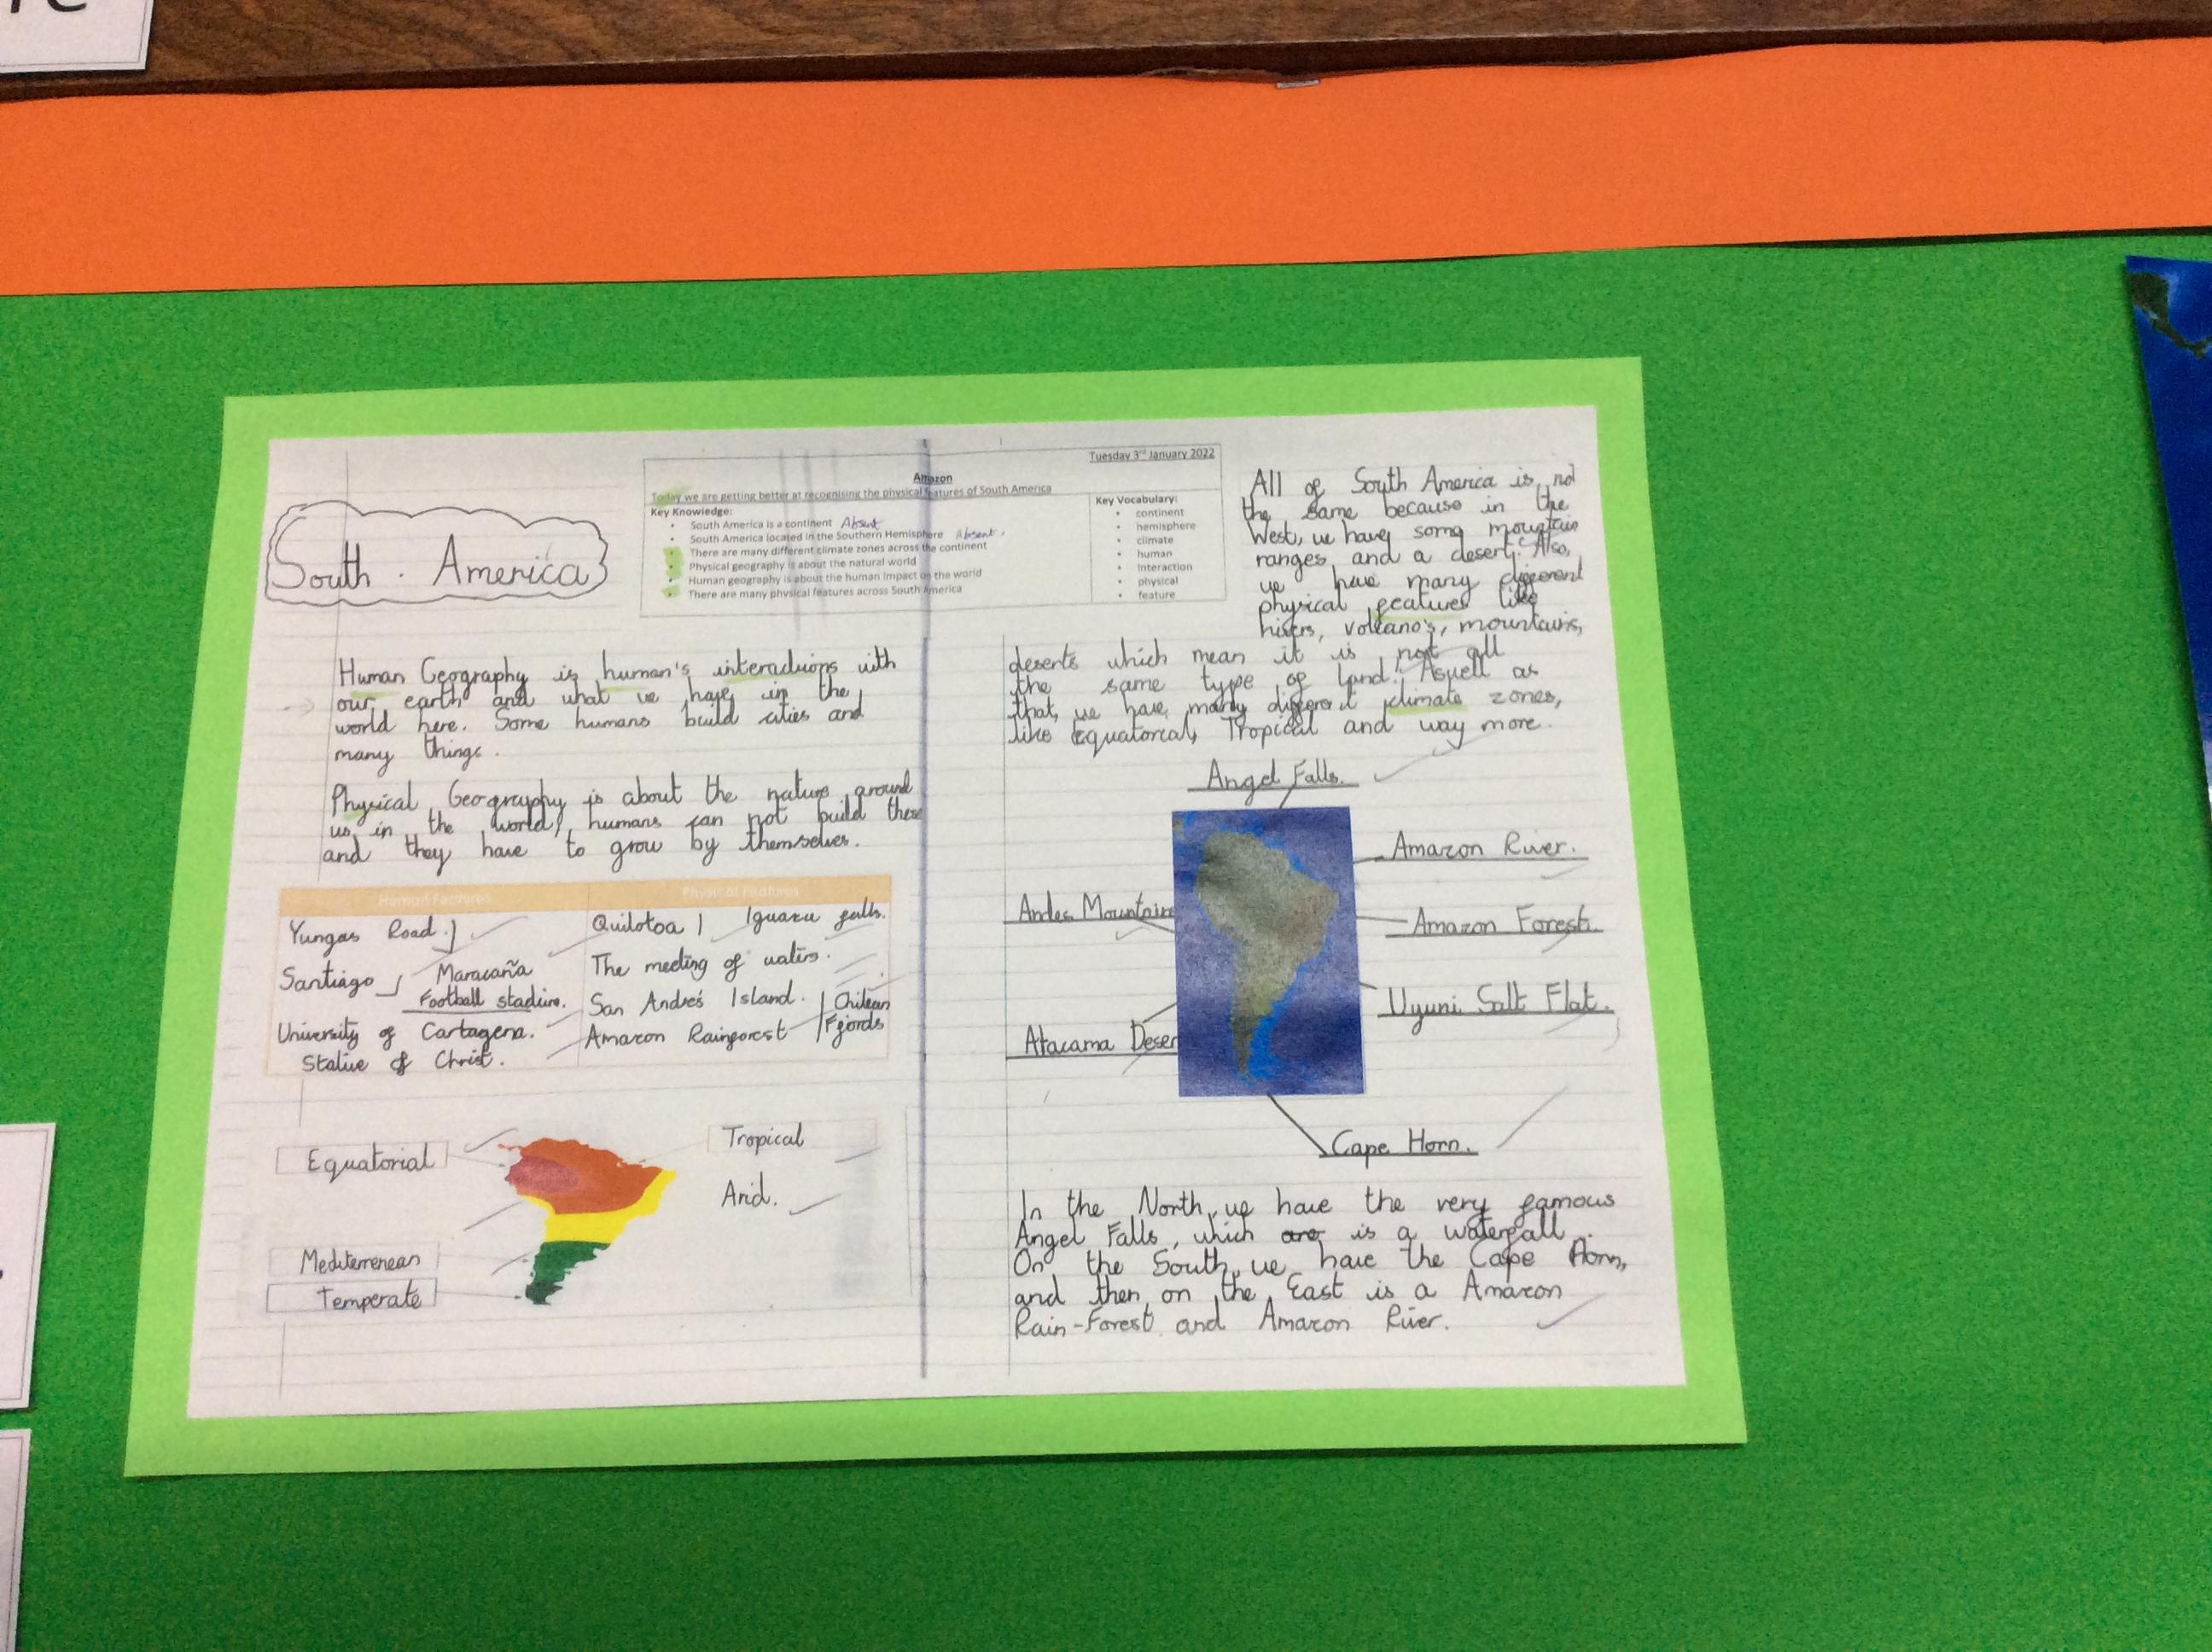 South . America
Tuesday 3rd January 2022
Amazon
Today we are getting better at recognising the physical features of South America
Key Knowledge:
South America is a continent Absent
South America located in the Southern Hemisphere Absent.
There are many different climate zones across the continent
Physical geography is about the natural world
Human geography is about the human impact on the world
There are many physical features across South America
Key Vocabulary:
continent
hemisphere
climate
human
interaction
physical
feature
Human Geography is human's interactions with
our earth and what we have in the
world here. Some humans build cities and
many things.
Physical Geography is about the nature around
us in the world, humans can not build these
and they have to grow by themselves.
Human Features
Yungas Road.
Santiago Maracaña
Football stadium.
University of Cartagena.
Statue of Christ.
Physical Features
Quilotoa Iguazu falls.
The meeting of waters.
San Andrés Island. Chilean
Amazon Rainforest Fjords
Equatorial
Tropical
Arid.
Mediterrenean
Temperate
All of South America is not
the same because in the
West, we have some mountain
ranges and a desert. Also,
we have many different
physical features like
rivers, volcano's, mountains,
deserts which mean it is not all
the same type of land. Aswell as
that, we have many different climate zones,
like Equatorial, Tropical and way more.
Angel Falls.
Amazon River.
Andes Mountains
Amazon Forest.
Uyuni Salt Flat.
Atacama Deser
Cape Horn.
In the North, we have the very famous
Angel Falls, which are is a waterfall.
On the South, we have the Cape Horn,
and then, on the East is a Amazon
Rain-Forest and Amazon River.